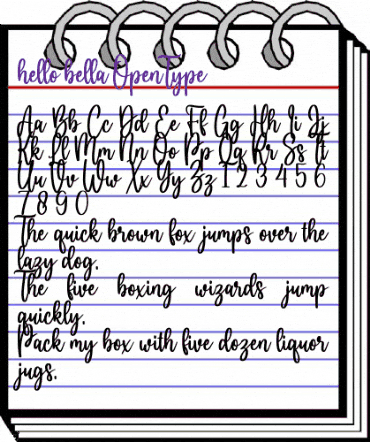 hello bella OpenType
Aa Bb Cc Dd Ee Ff Gg Hh Ii Jj
Kk Ll Mm Nn Oo Pp Qq Rr Ss Tt
Uu Vv Ww Xx Yy Zz 1 2 3 4 5 6
7 8 9 0
The quick brown fox jumps over the
lazy dog.
The five boxing wizards jump
quickly.
Pack my box with five dozen liquor
jugs.